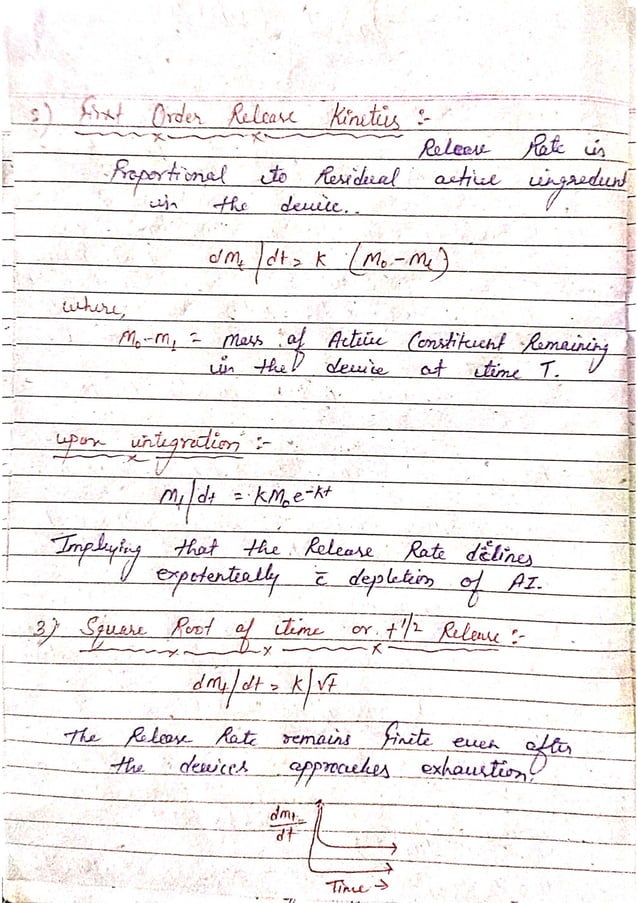 2) First Order Release Kinetics :-
Release Rate is
Proportional to Residual active ingredient
in the device..
dmt/dt = K (M0-Mt)
where,
M0-Mt = mass of Active Constituent Remaining
in the device at time T.
upon integration :-
Mt/dt = KM0e-Kt
Implying that the Release Rate declines
expotentially c̄ depletion of AI.
3) Square Root of time or t1/2 Release :-
dmt/dt = K/√t
The Release Rate remains finite even after
the devices approaches exhaustion.
dmt
dt
Time →